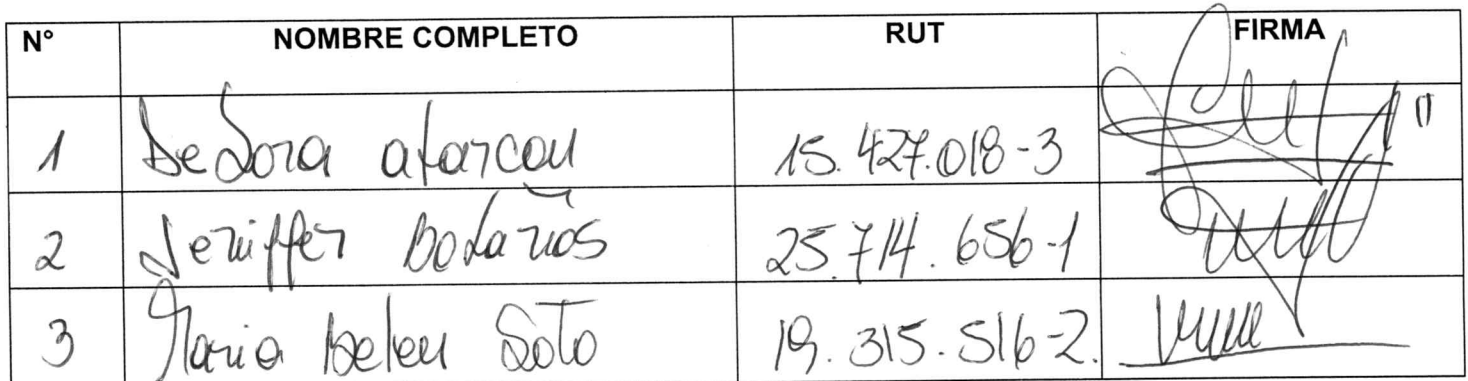 N° NOMBRE COMPLETO RUT FIRMA
1 Debora alarcon 15.427.018-3
2 Jeniffer Bolaños 25.714.656-1
3 Maria Belen Soto 19.315.516-2.